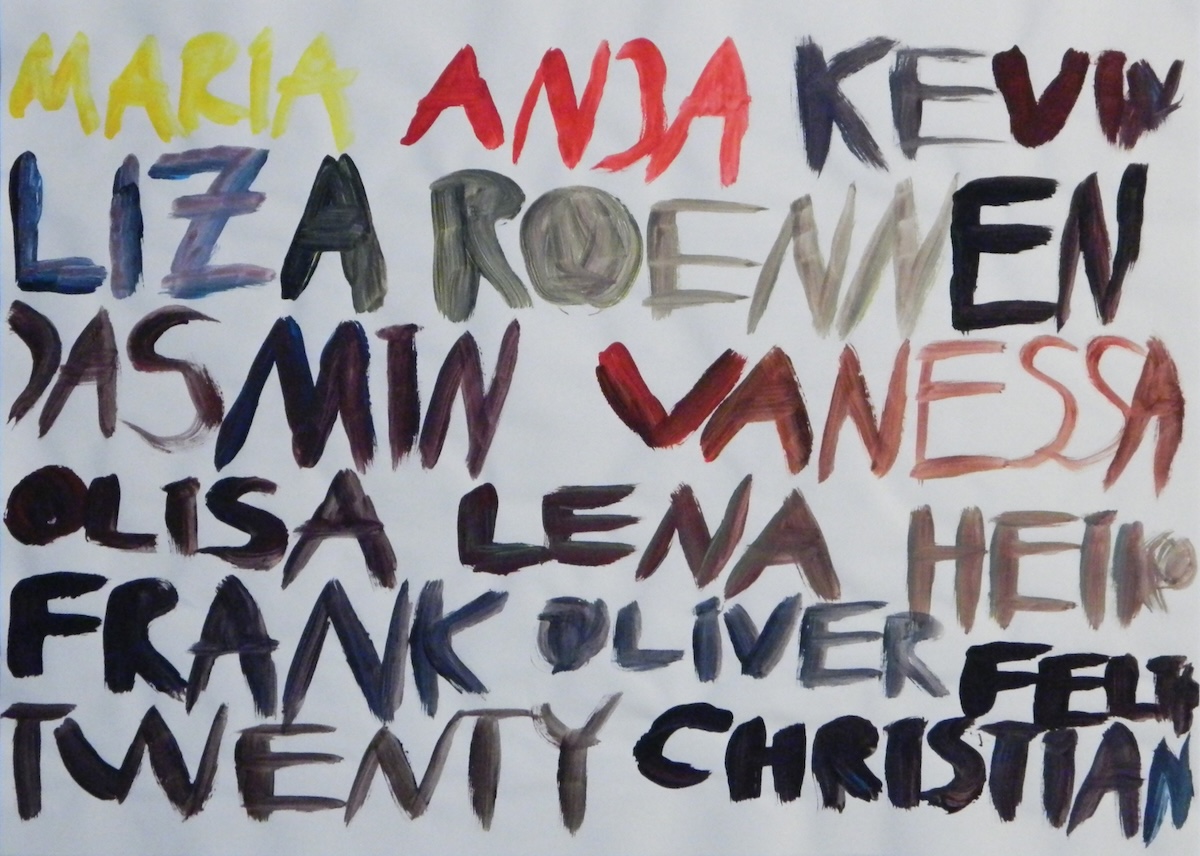 MARIA ANJA KEVIN
LIZA ROENNEN
JASMIN VANESSA
OLISA LENA HEIKO
FRANK OLIVER FELIX
TWENTY CHRISTIAN